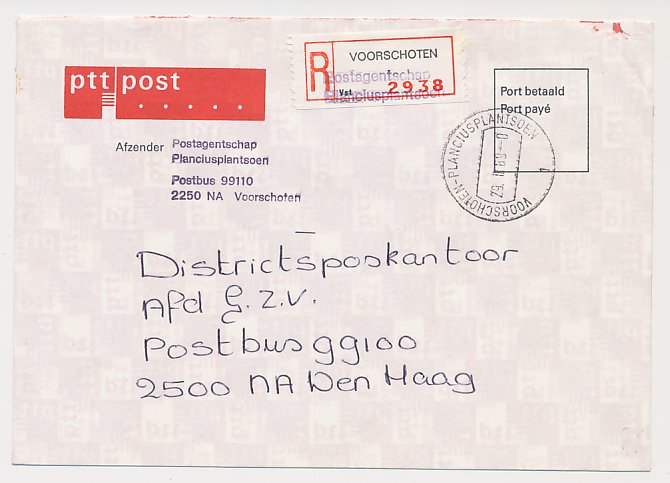 ptt post
R
VOORSCHOTEN
Postagentschap
Planciusplantsoen
Vst 2938
Port betaald
Port payé
Afzender
Postagentschap
Planciusplantsoen
Postbus 99110
2250 NA Voorschoten
VOORSCHOTEN-PLANCIUSPLANTSOEN
1
Districtsposkantoor
Afd G.Z.V.
Postbus 99100
2500 NA Den Haag